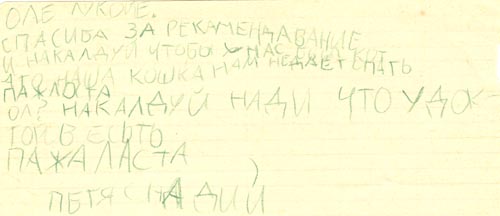 ОЛЕ ЛУКОЙЕ.
СПАСИБА ЗА РЕКАМЕНДАВАНИЕ
И НАКАЛДУЙ ЧТОБЫ У НАС БЫЛ КОТ
А ТО НАША КОШКА НАМ НЕДАЕТ СПАТЬ
ПАЖЛОТА
ОЛЕ НАКАЛДУЙ НАДИ ЧТО
ПАЖАЛАСТА
ПЕТЯ С НАДИЙ